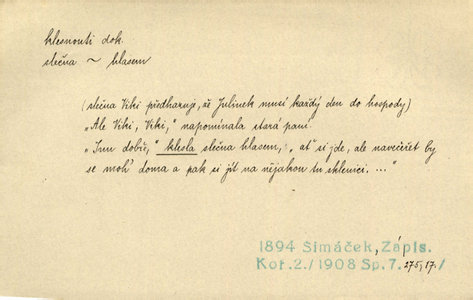 klesnouti dok.
slečna ~ hlasem
(slečna Viki předhazuje, že Julinek musí každý den do hospody)
„Ale Viki, Viki,“ napomínala stará paní.
„Inu dobře,“ klesla slečna hlasem, „ať si jde, ale navečeřet by
se moh' doma a pak si jít na nějakou tu sklenici. ...“
1894 Šimáček, Zápis.
Koř.2./1908 Sp.7. 275, 17./